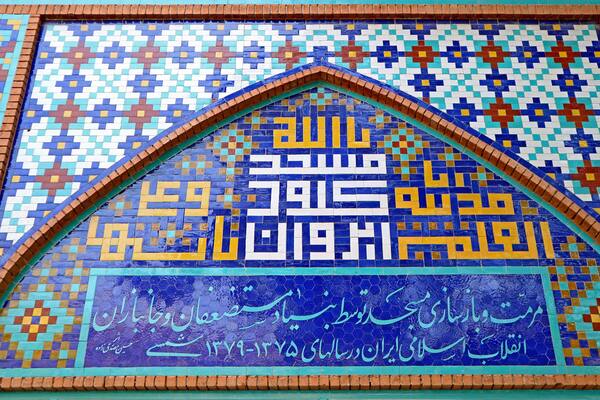 یا الله
مسجد
کبود
ایروان
انا
مدینة
العلم
و علی
بابها
مرمت و بازسازی مسجد توسط بنیاد مستضعفان و جانبازان
انقلاب اسلامی ایران در سالهای ۱۳۷۵-۱۳۷۹ شمسی